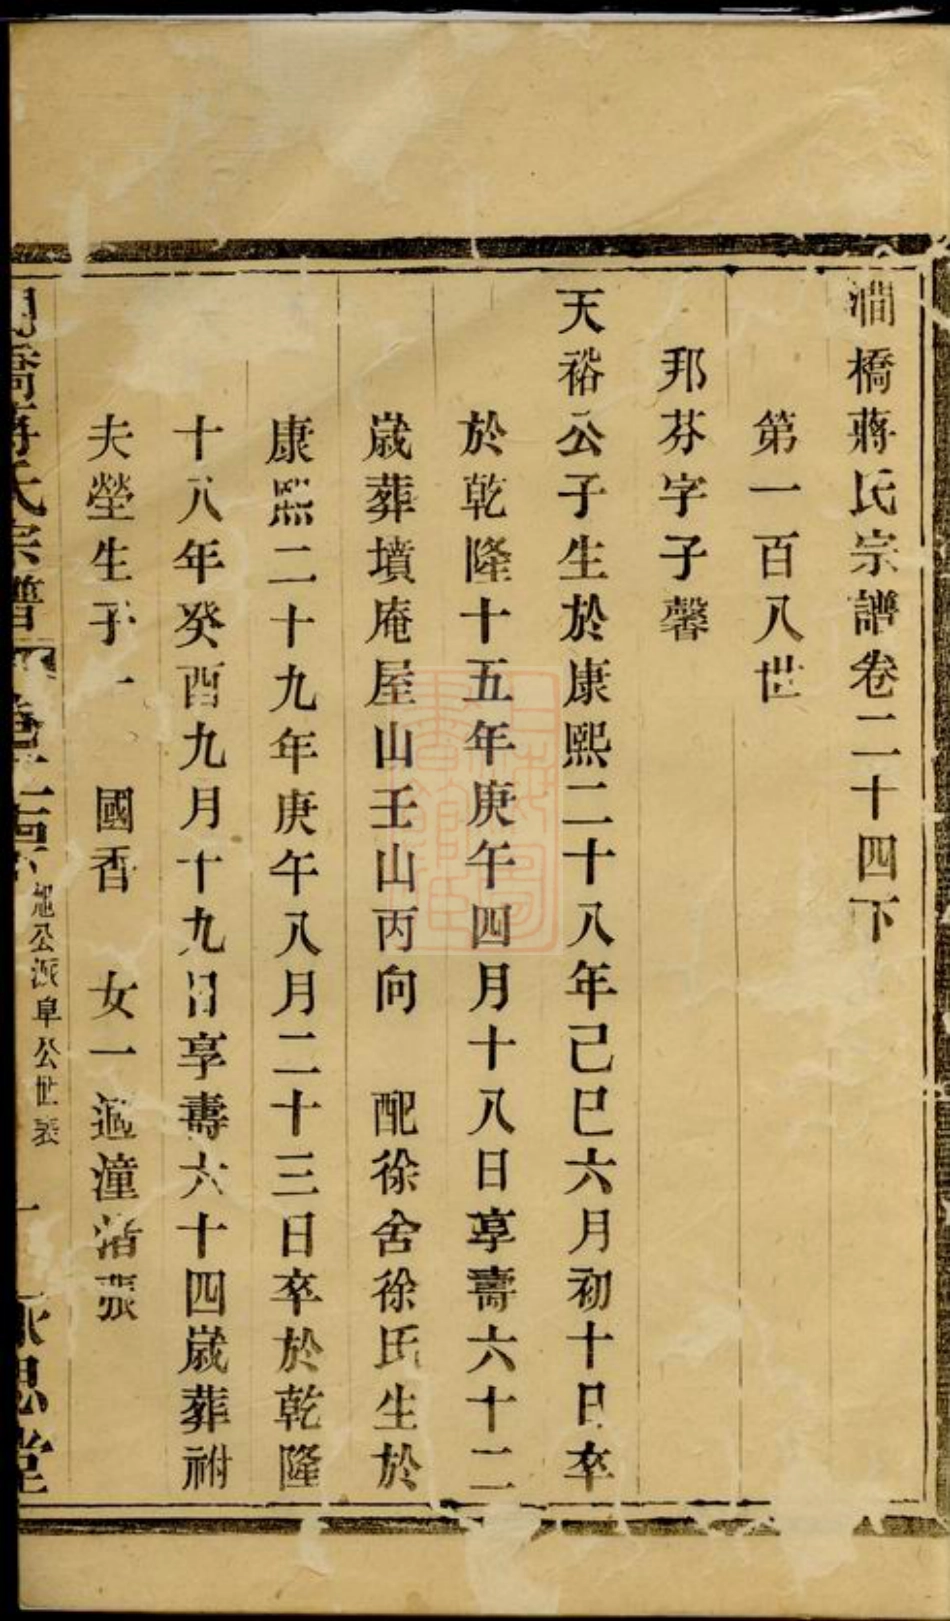 澗橋蔣氏宗譜卷二十四下
第一百八世
邦芬字子馨
天裕公子生於康熙二十八年己巳六月初十日卒
於乾隆十五年庚午四月十八日享壽六十二
歲葬墳庵屋山壬山丙向　配徐舍徐氏生於
康熙二十九年庚午八月二十三日卒於乾隆
十八年癸酉九月十九日享壽六十四歲葬祔
夫塋生子一　國香　女一適潼渚張
橋蔣氏宗譜　公派阜公世表　一　永思堂